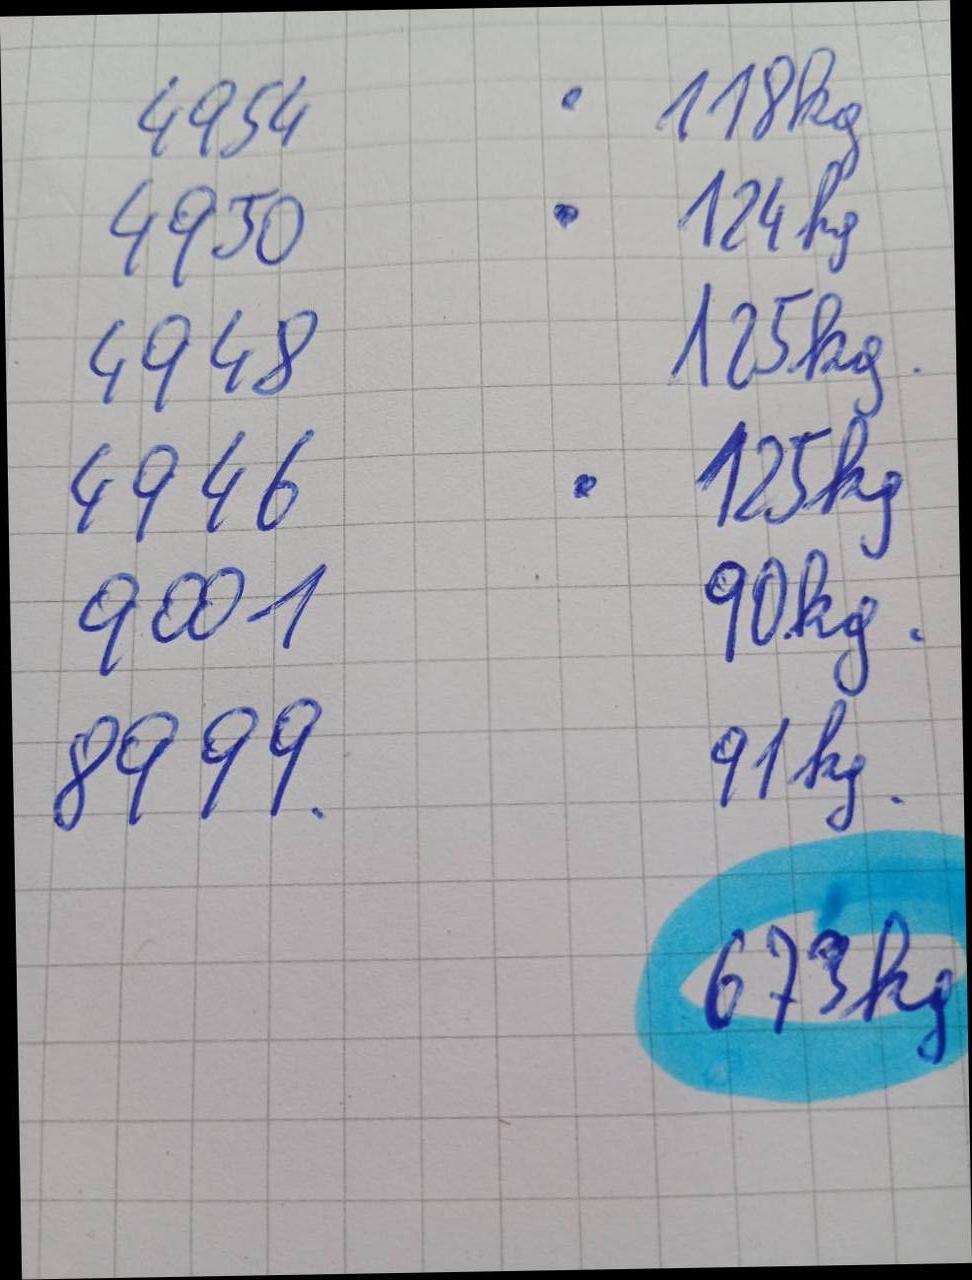 4954 • 118kg
4950 • 124kg
4948 125kg.
4946 • 125kg
9001 90kg.
8999. 91kg.
673kg